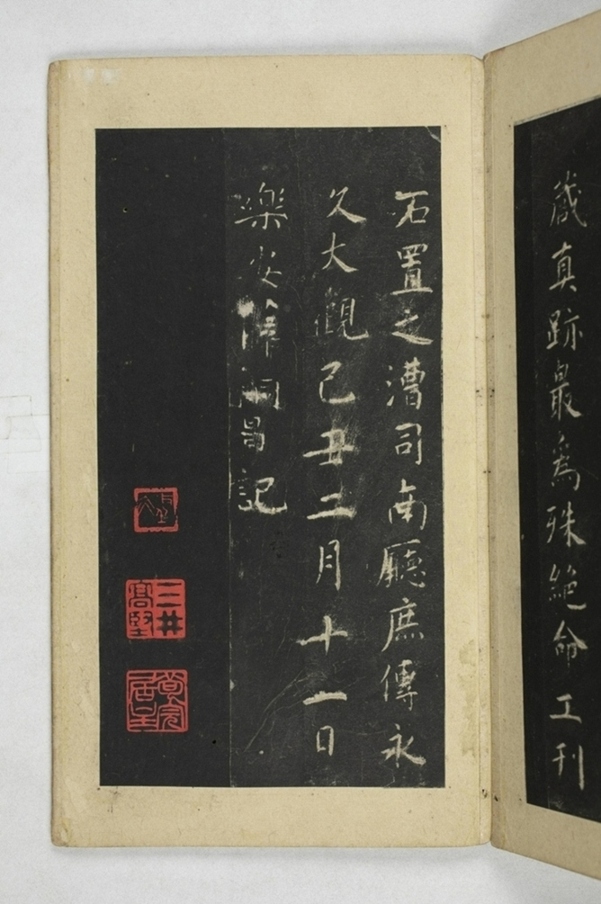 藏真跡最爲殊絕命工刊
石置之漕司南廳庶傳永
久大觀己丑二月十一日
樂安薛嗣昌記
三井高堅